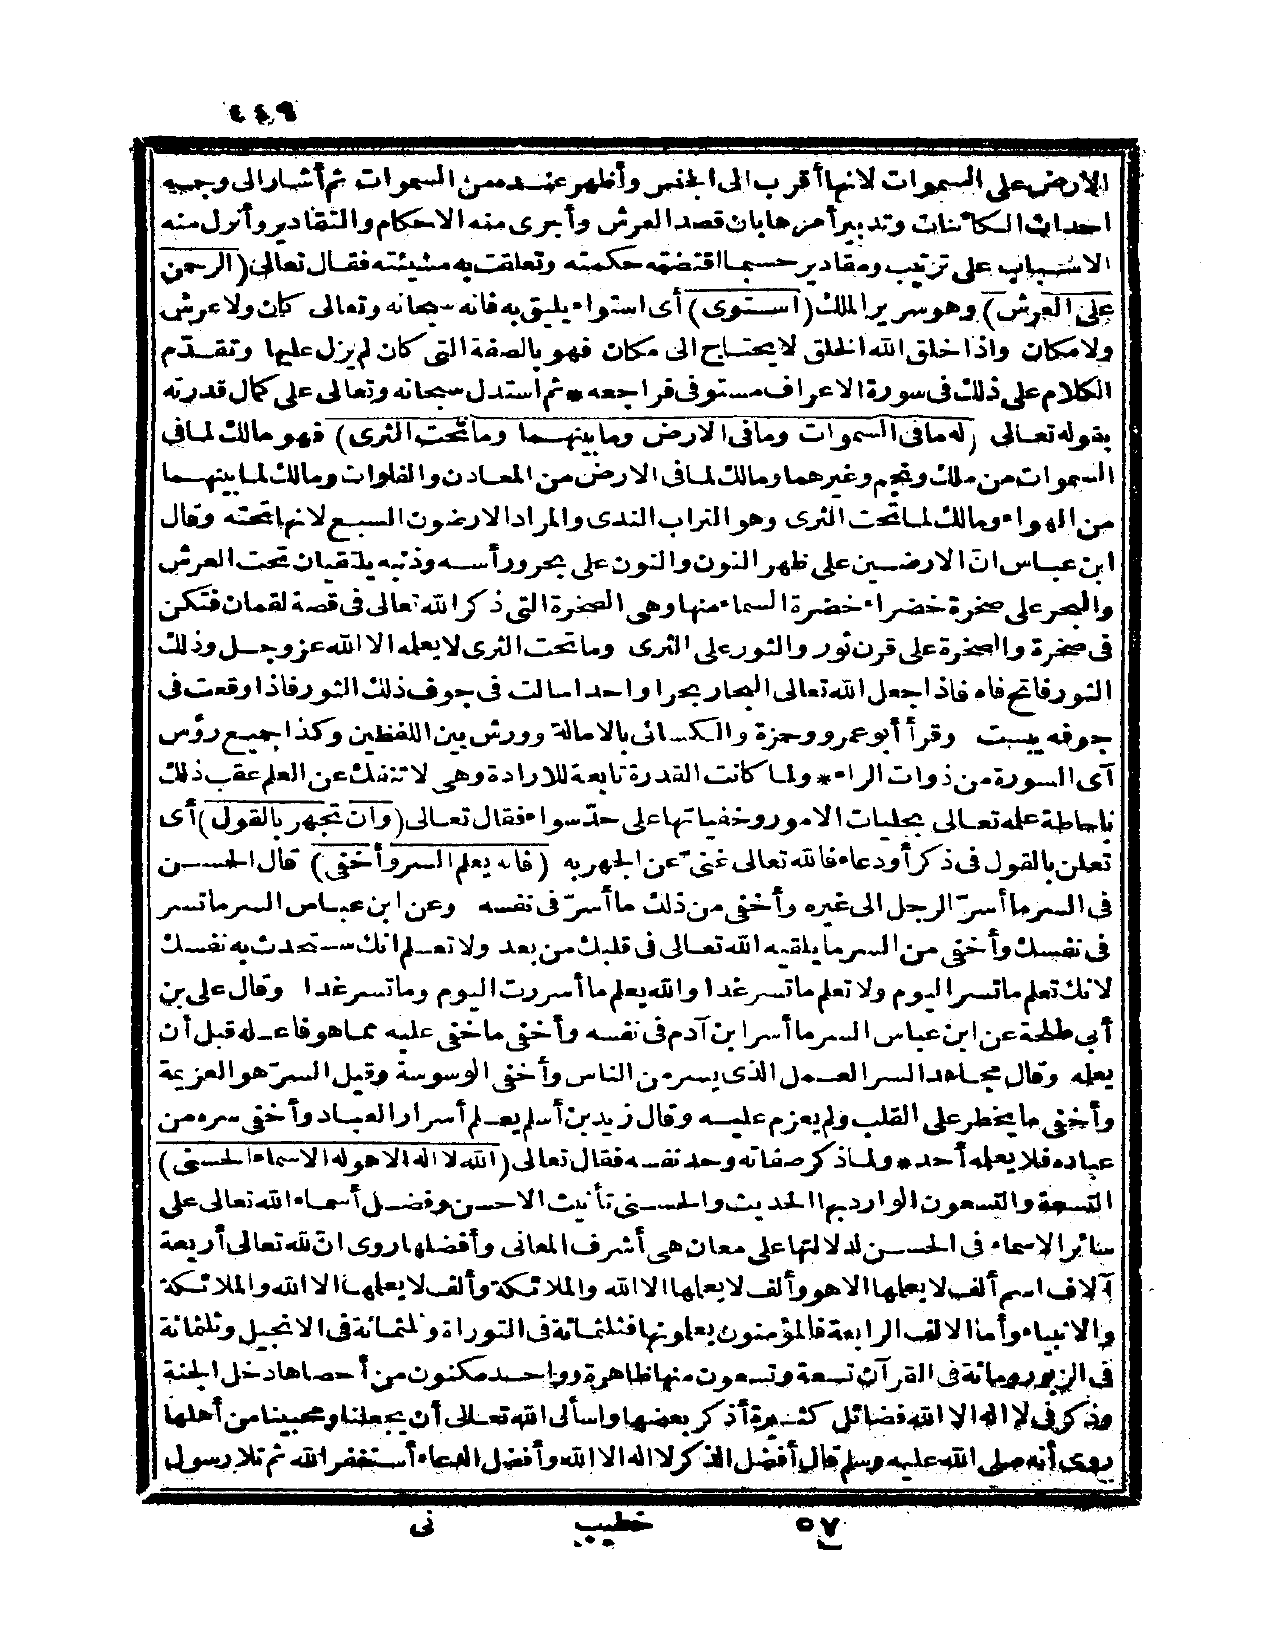 ٤٤٩
الارض على السموات لانها أقرب الى الحس وأظهر عنده من السموات ثم أشار الى وجه
احداث الكائنات وتدبير أمرها بان قصد العرش وأجرى منه الاحكام والتقادير وأنزل منه
الاسباب على ترتيب ومقادير حسبما اقتضته حكمته وتعلقت به مشيئته فقال تعالى (الرحمن
على العرش) وهو سرير الملك (استوى) أى استواء يليق به فانه سبحانه وتعالى كان ولا عرش
ولا مكان واذا خلق الله الخلق لا يحتاج الى مكان فهو بالصفة التى كان لم يزل عليها وتقدّم
الكلام على ذلك فى سورة الاعراف مستوفى فراجعه * ثم استدل سبحانه وتعالى على كمال قدرته
بقوله تعالى (له ما فى السموات وما فى الارض وما بينهما وما تحت الثرى) فهو مالك لما فى
السموات من ملك ونجم وغيرهما ومالك لما فى الارض من المعادن والفلوات ومالك لما بينهما
من الهواء ومالك لما تحت الثرى وهو التراب الندى والمراد الارضون السبع لانها تحته وقال
ابن عباس انّ الارضين على ظهر النون والنون على بحر ورأسه وذنبه يلتقيان تحت العرش
والبحر على صخرة خضراء خضرة السماء منها وهى الصخرة التى ذكر الله تعالى فى قصة لقمان فتكن
فى صخرة والصخرة على قرن ثور والثور على الثرى وما تحت الثرى لا يعلمه الا الله عز وجل وذلك
الثور فاتح فاه فاذا جعل الله تعالى البحار بحرا واحدا سالت فى جوف ذلك الثور فاذا وقعت فى
جوفه يبست وقرأ أبو عمرو وحمزة والكسائى بالامالة وورش بين اللفظين وكذا جميع رؤس
آى السورة من ذوات الراء * ولما كانت القدرة تابعة للارادة وهى لا تنفك عن العلم عقب ذلك
باحاطة علمه تعالى بجليات الامور وخفياتها على حدّ سواء فقال تعالى (وان تجهر بالقول) أى
تعلن بالقول فى ذكر أو دعاء فالله تعالى غنىّ عن الجهر به (فانه يعلم السر وأخفى) قال الحسن
فى السر ما أسرّ الرجل الى غيره وأخفى من ذلك ما أسرّ فى نفسه وعن ابن عباس السر ما تسر
فى نفسك وأخفى من السر ما يلقيه الله تعالى فى قلبك من بعد ولا تعلم انك ستحدث به نفسك
لانك تعلم ما تسر اليوم ولا تعلم ما تسر غدا والله يعلم ما أسررت اليوم وما تسر غدا وقال على بن
أبى طلحة عن ابن عباس السر ما أسر ابن آدم فى نفسه وأخفى ما خفى عليه مما هو فاعله قبل أن
يعلمه وقال مجاهد السر العمل الذى يسر من الناس وأخفى الوسوسة وقيل السرّ هو العزيمة
وأخفى ما يخطر على القلب ولم يعزم عليه وقال زيد بن أسلم يعلم أسرار العباد وأخفى سره من
عباده فلا يعلمه أحد * ولما ذكر صفاته وحد نفسه فقال تعالى (الله لا اله الا هو له الاسماء الحسنى)
التسعة والتسعون الوارد بها الحديث والحسنى تأنيث الاحسن وفضل أسماء الله تعالى على
سائر الاسماء فى الحسن لدلالتها على معان هى أشرف المعانى وأفضلها روى انّ لله تعالى أربعة
آلاف اسم ألف لا يعلمها الا هو وألف لا يعلمها الا الله والملائكة وألف لا يعلمها الا الله والملائكة
والانبياء وأما الالف الرابعة فالمؤمنون يعلونها فثلثمائة فى التوراة وثلثمائة فى الانجيل وثلثمائة
فى الزبور ومائة فى القرآن تسعة وتسعون منها ظاهرة وواحد مكنون من أحصاها دخل الجنة
وذكر فى لا اله الا الله فضائل كثيرة أذكر بعضها واسأل الله تعالى أن يجعلنا ومحبينا من أهلها
روى أنه صلى الله عليه وسلم قال أفضل الذكر لا اله الا الله وأفضل الدعاء أستغفر الله ثم تلا رسول
٥٧ خطيب نى